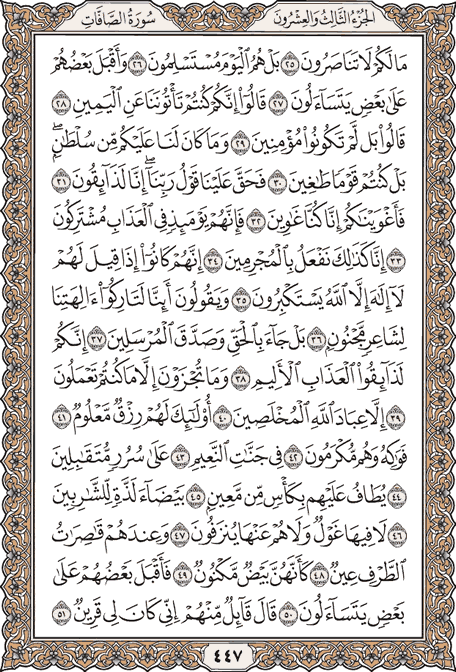 سُورَةُ الصَّافَّاتِ الجُزْءُ الثَّالِثُ وَالعِشْرُونَ
مَا لَكُمْ لَا تَنَاصَرُونَ ٢٥ بَلْ هُمُ الْيَوْمَ مُسْتَسْلِمُونَ ٢٦ وَأَقْبَلَ بَعْضُهُمْ
عَلَىٰ بَعْضٍ يَتَسَاءَلُونَ ٢٧ قَالُوا إِنَّكُمْ كُنتُمْ تَأْتُونَنَا عَنِ الْيَمِينِ ٢٨
قَالُوا بَل لَّمْ تَكُونُوا مُؤْمِنِينَ ٢٩ وَمَا كَانَ لَنَا عَلَيْكُم مِّن سُلْطَٰنٍۖ
بَلْ كُنتُمْ قَوْمًا طَٰغِينَ ٣٠ فَحَقَّ عَلَيْنَا قَوْلُ رَبِّنَاۖ إِنَّا لَذَائِقُونَ ٣١
فَأَغْوَيْنَٰكُمْ إِنَّا كُنَّا غَٰوِينَ ٣٢ فَإِنَّهُمْ يَوْمَئِذٍ فِي الْعَذَابِ مُشْتَرِكُونَ
٣٣ إِنَّا كَذَٰلِكَ نَفْعَلُ بِالْمُجْرِمِينَ ٣٤ إِنَّهُمْ كَانُوا إِذَا قِيلَ لَهُمْ
لَا إِلَٰهَ إِلَّا اللَّهُ يَسْتَكْبِرُونَ ٣٥ وَيَقُولُونَ أَئِنَّا لَتَارِكُوا ءَالِهَتِنَا
لِشَاعِرٍ مَّجْنُونٍ ٣٦ بَلْ جَاءَ بِالْحَقِّ وَصَدَّقَ الْمُرْسَلِينَ ٣٧ إِنَّكُمْ
لَذَائِقُوا الْعَذَابِ الْأَلِيمِ ٣٨ وَمَا تُجْزَوْنَ إِلَّا مَا كُنتُمْ تَعْمَلُونَ
٣٩ إِلَّا عِبَادَ اللَّهِ الْمُخْلَصِينَ ٤٠ أُولَٰئِكَ لَهُمْ رِزْقٌ مَّعْلُومٌ ٤١
فَوَٰكِهُ وَهُم مُّكْرَمُونَ ٤٢ فِي جَنَّٰتِ النَّعِيمِ ٤٣ عَلَىٰ سُرُرٍ مُّتَقَٰبِلِينَ
٤٤ يُطَافُ عَلَيْهِم بِكَأْسٍ مِّن مَّعِينٍ ٤٥ بَيْضَاءَ لَذَّةٍ لِّلشَّٰرِبِينَ
٤٦ لَا فِيهَا غَوْلٌ وَلَا هُمْ عَنْهَا يُنزَفُونَ ٤٧ وَعِندَهُمْ قَٰصِرَٰتُ
الطَّرْفِ عِينٌ ٤٨ كَأَنَّهُنَّ بَيْضٌ مَّكْنُونٌ ٤٩ فَأَقْبَلَ بَعْضُهُمْ عَلَىٰ
بَعْضٍ يَتَسَاءَلُونَ ٥٠ قَالَ قَائِلٌ مِّنْهُمْ إِنِّي كَانَ لِي قَرِينٌ ٥١
٤٤٧